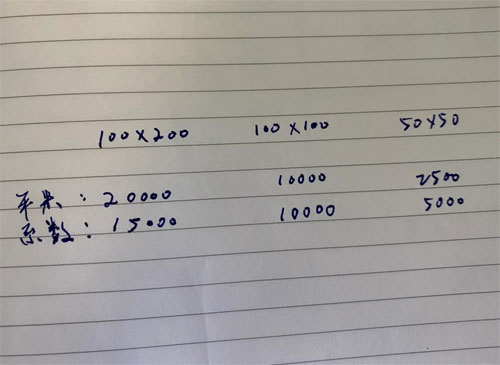 100×200 100×100 50×50
平米：20000 10000 2500
系数：15000 10000 5000